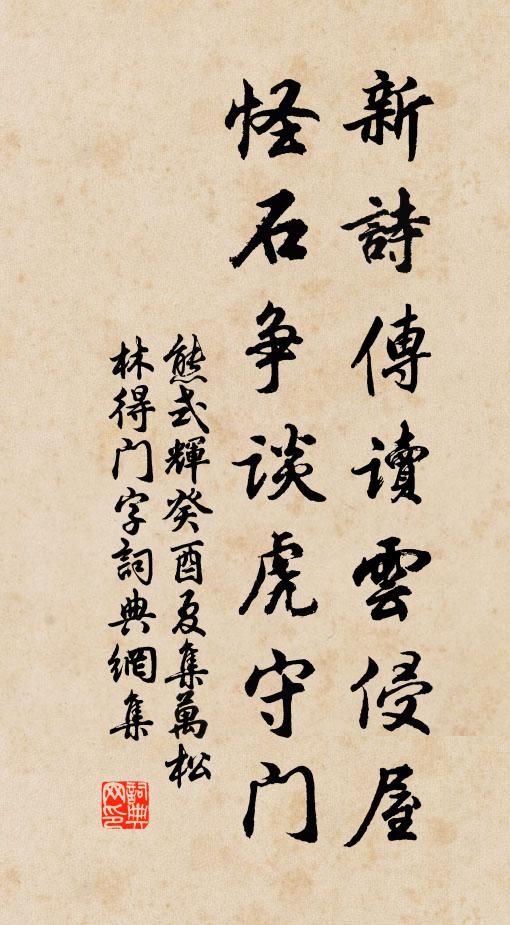 新詩傳讀雲侵屋
怪石争談虎守門
熊式輝癸酉夏集萬松
林得门字詞典網集
詞典网印